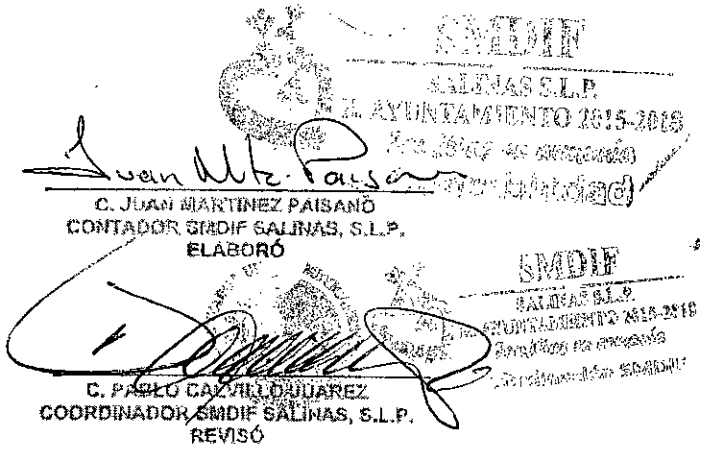 SMDIF
SALINAS S.L.P.
H. AYUNTAMIENTO 2015-2018
Juan Mtz. Paisano
C. JUAN MARTINEZ PAISANO
CONTADOR SMDIF SALINAS, S.L.P.
ELABORÓ
SMDIF
SALINAS S.L.P.
AYUNTAMIENTO 2015-2018
C. PABLO CALVILLO JUAREZ
COORDINADOR SMDIF SALINAS, S.L.P.
REVISÓ